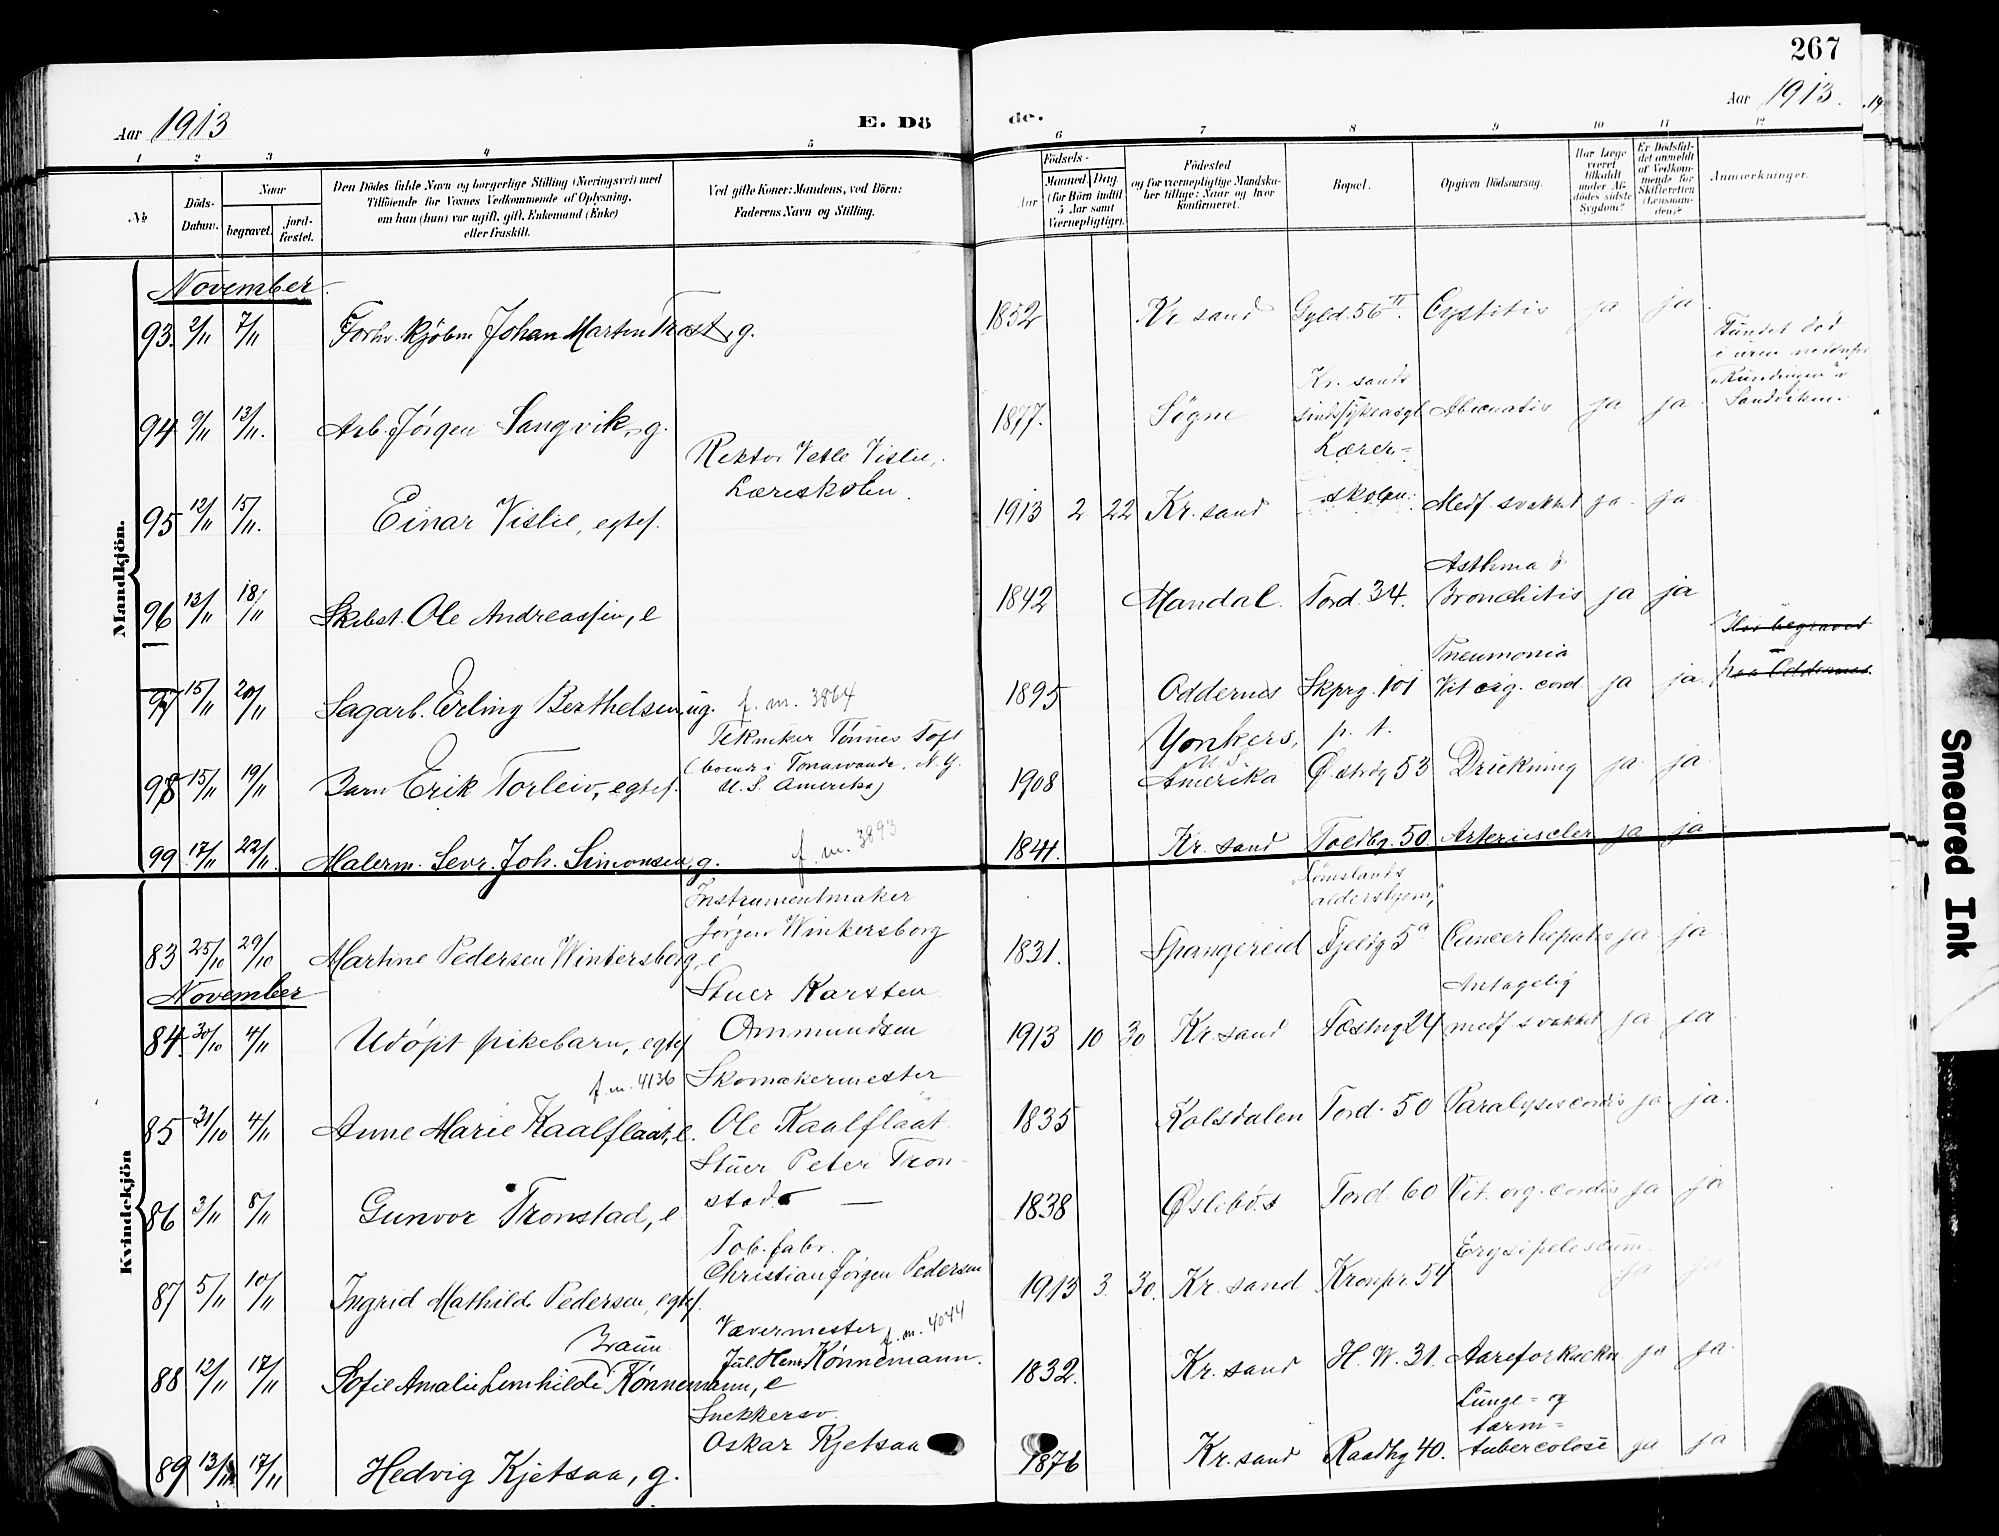 267
Aar 1913
E. Dö
de.
Aar 1913.
1 2 3 4 5 6 7 8 9 10 11 12
№
Döds-
Datum.
Naar
begravet.
jord-
fæstet.
Den Dödes fulde Navn og borgerlige Stilling (Næringsvei) med
Tilföiende for Voxnes Vedkommende af Oplysning,
om han (hun) var ugift, gift, Enkemand (Enke)
eller fraskilt.
Ved gifte Koner: Mandens, ved Börn:
Faderens Navn og Stilling.
Födsels-
Aar
Maaned.
Dag.
(for Börn indtil
5 Aar samt
Værnepligtige).
Födested
og for værnepligtige Mandska-
ber tillige: Naar og hvor
konfirmeret.
Bopæl.
Opgiven Dödsaarsag.
Har Læge
været
tilkaldt
under Af-
dödes sidste
Sygdom?
Er Dödsfal-
det anmeldt
af Vedkom-
mende for
Skifteretten
(Lensman-
den)?
Anmærkninger.
Mandkjön.
November
93. 2/11 7/11 Forhv. kjøbm Johan Martin Trost, g. 1852 Kr. sand Gyld. 56 II. Cystitis ja ja.
94 9/11 13/11. Arb. Jörgen Langvik, g. 1877. Søgne Kr. sands
sindssykeasyl ja ja.
Fundet død
i uren nedenfor
Sandviken.
95 12/11 15/11. Einar Vislie, egtef.
Rektor Vetle Vislie,
Læreskolen.
1913 2 22 Kr. sand
Lærer-
skolen.
Medf. svakhet ja. ja
96 13/11 18/11 Skibst. Ole Andreassen, e 1842 Mandal. Tord. 34.
Asthma &
Bronchitis ja ja
97 15/11 20/11 Sagarb. Erling Berthelsen, ug. f. m. 3864 1895 Oddernes Skprg. 101
Pneumonia
Vit. org. cord ja ja.
Her begravet
paa Oddernes
98 15/11 19/11 Barn Erik Torleiv, egtef.
Tekniker Tønnes Toft
(boende i Tonawanda, N. Y.
U. S. Amerika)
1908
Yonkers,
U. S.
Amerika
p. t.
Ø. strdg 53 Drukning ja ja.
99. 17/11 22/11. Malerm. Sevr. Joh. Simonsen, g. f. m. 3893 1841. Kr. sand Toldbg. 50. Arterioscler ja ja
Kvindekjön
83 25/10 29/10 Martine Pedersen Wintersborg, e
Instrumentmaker
Jørgen Winkersborg
1831. Spangereid
aldershjem,
Tjelvg 5 a Cancer hepatis ja ja.
November
84. 30/10 4/11 Udøpt pikebarn, egtef
Stuer Karsten
Ommundsen
1913 10 30 Kr. sand Fæstng 24
Antagelig
medf svakhet ja ja
85 31/10 4/11 Anne Marie Kaalflaat, e.
f. m. 4136
Skomakermester
Ole Kaalflaat
1835 Kolsdalen Tord. 50 Paralysis cordis ja ja.
86 3/11 8/11 Gunvor Tronstad, e
Stuer Peter Tron-
stad —
1838 Øslebøs Tord. 60 Vit. org. cordis ja ja
87 5/11 10/11 Ingrid Mathilde Pedersen, egtef.
Tob. fabr.
Christian Jørgen Pedersen
1913 3. 30. Kr. sand Kronpr. 54 ja ja
88 12/11 17/11
Braun
Sofie Amalie Lernhilde Kønnemann, e
Vævermester f. m. 4044
Jul. Henr. Kønnemann.
1832. Kr. sand H. W. 31. Aareforkalkn ja ja.
89 13/11 17/11 Hedvig Kjetsaa, g.
Snekkersv.
Oskar Kjetsaa
1876 Kr. sand Raadhg 40.
Lunge- og
tarm-
tuberculose ja ja
Smeared Ink